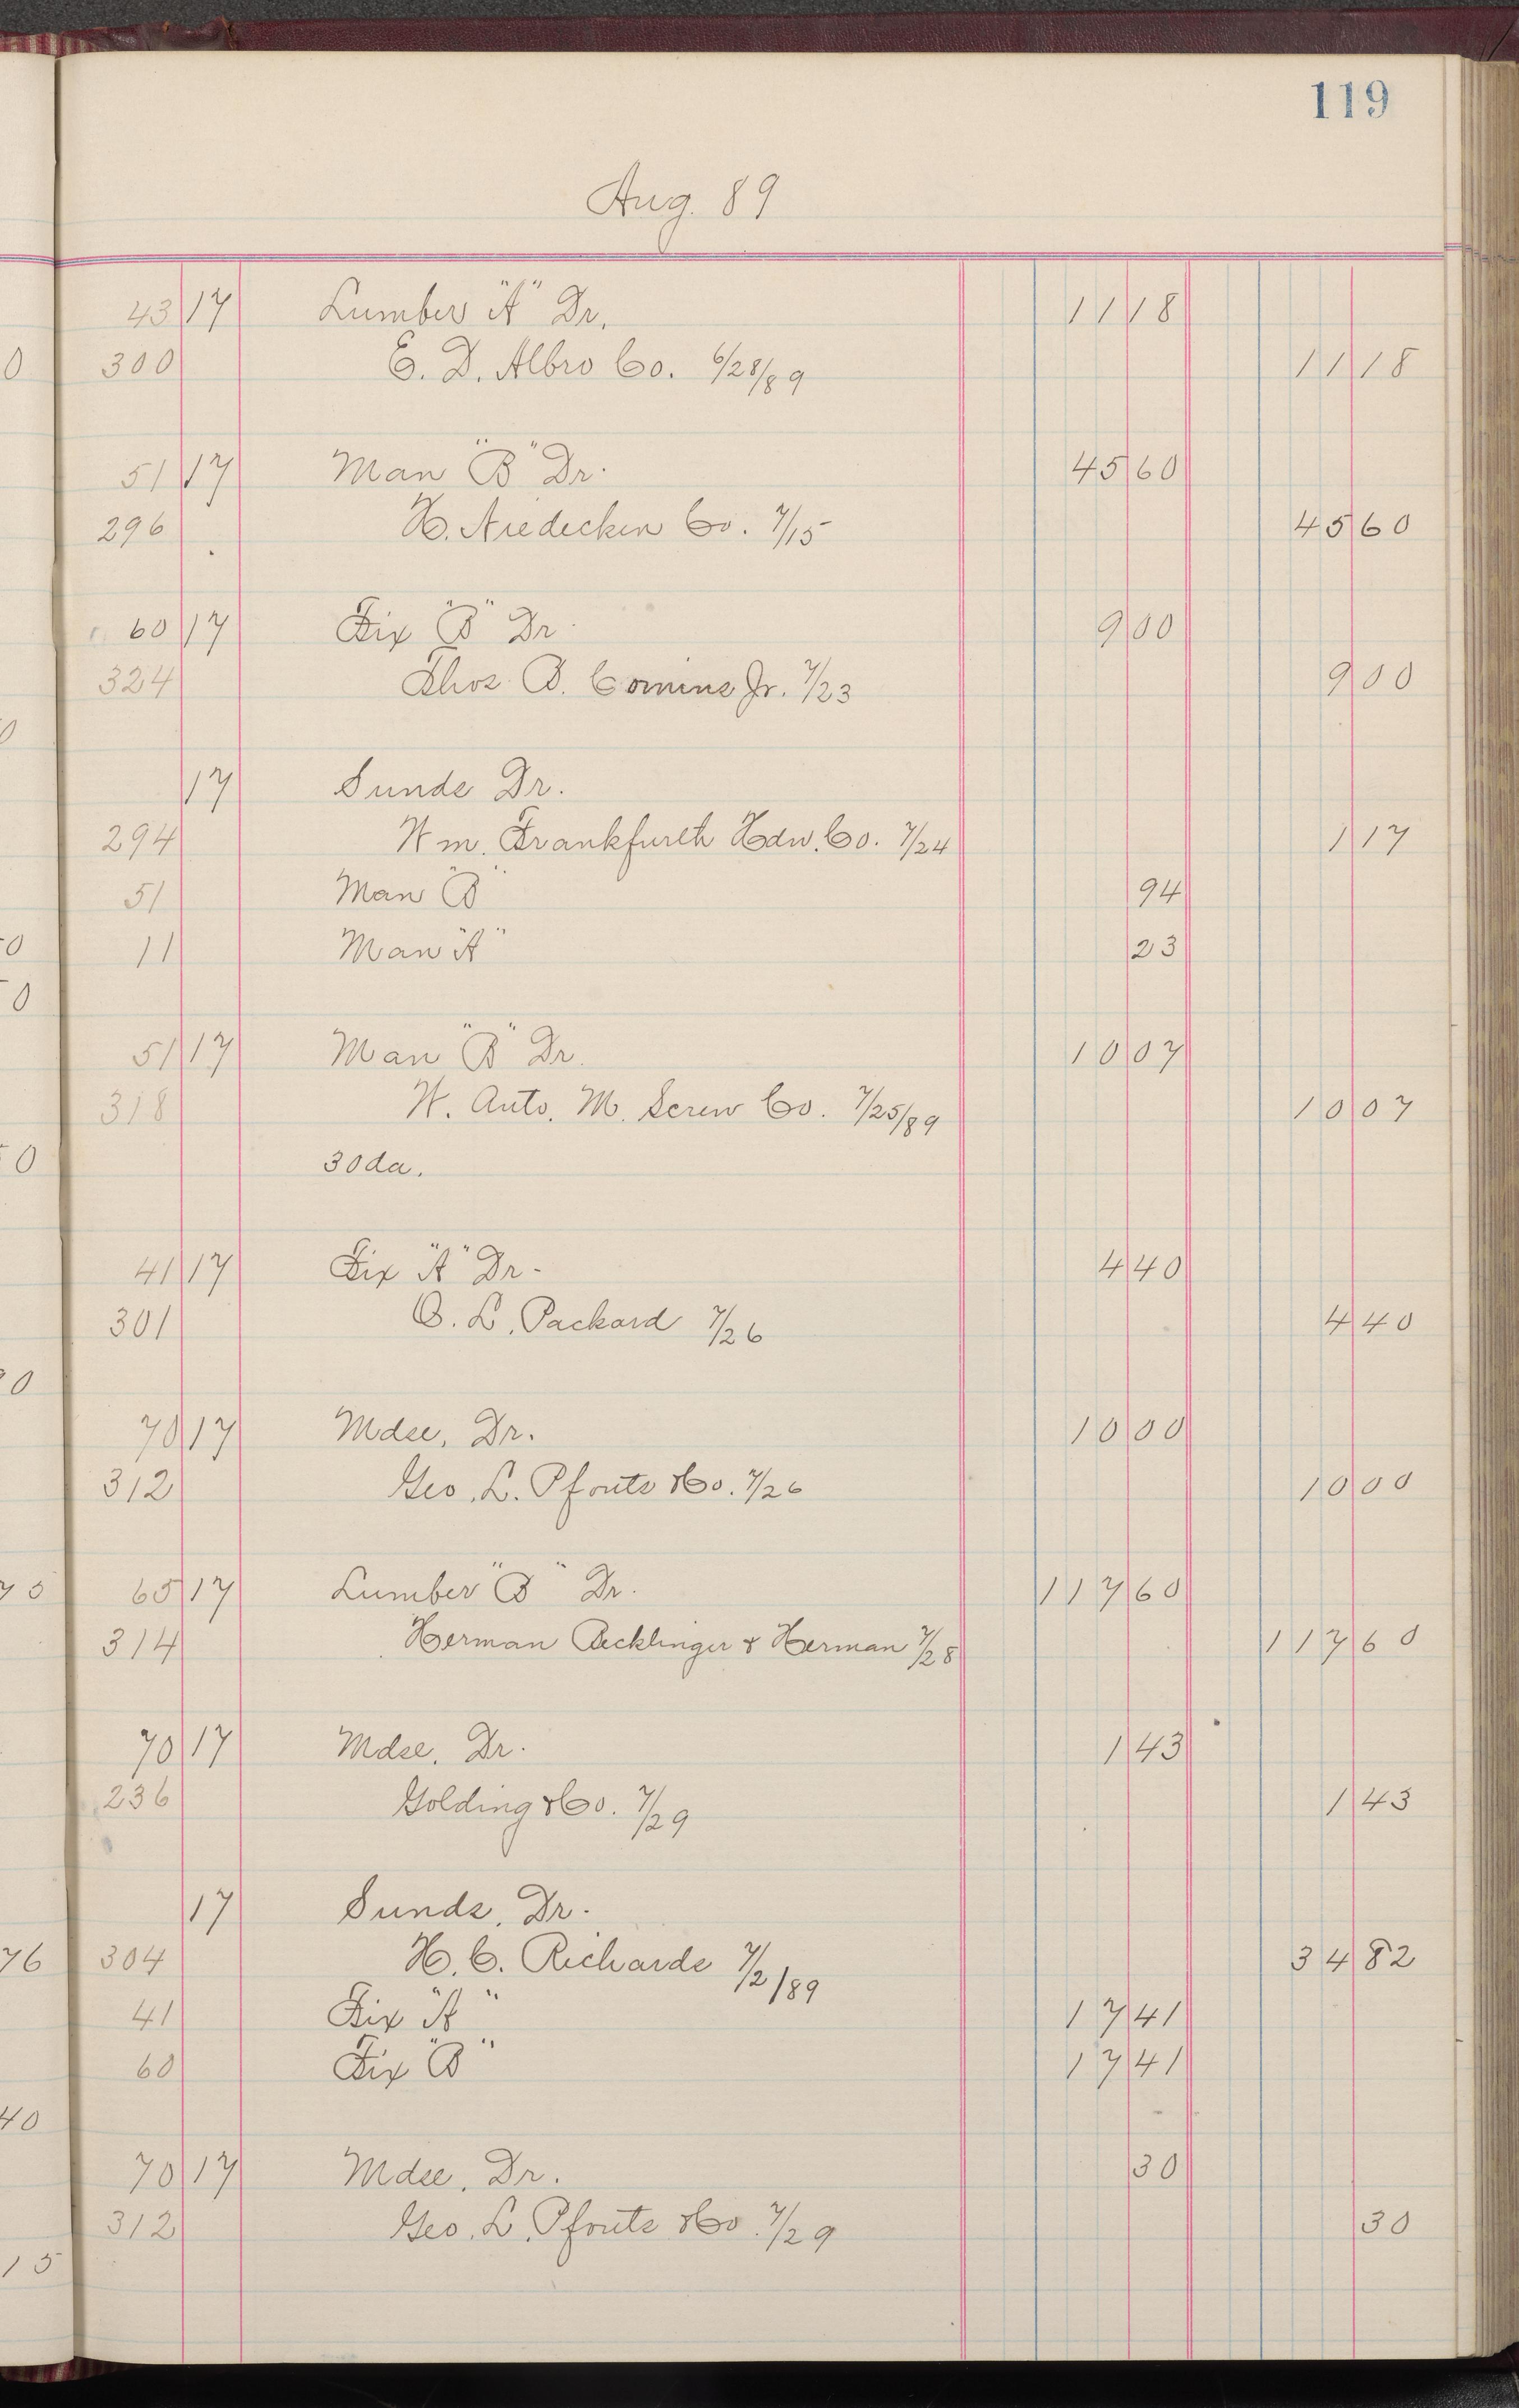 119
Aug. 89
43 17 Lumber "A" Dr. 11 18
300 E. D. Albro Co. 6/28/89 11 18
51 17 Man "B" Dr. 45 60
296 H. Niedecken Co. 7/15 45 60
60 17 Fix "B" Dr. 9 00
324 Thos B. Comins Jr. 7/23 9 00
17 Sunds Dr.
294 Wm. Frankfurth Hdw. Co. 7/24 1 17
51 Man "B" 94
11 Man "A" 23
51 17 Man "B" Dr. 10 07
318 W. Auto. M. Screw Co. 7/25/89 10 07
30da.
41 17 Fix "A" Dr. 4 40
301 O. L. Packard 7/26 4 40
70 17 Mdse. Dr. 10 00
312 Geo. L. Pfouts & Co. 7/26 10 00
65 17 Lumber "B" Dr. 117 60
314 Herman Becklinger & Herman 7/28 117 60
70 17 Mdse. Dr. 1 43
236 Golding & Co. 7/29 1 43
17 Sunds. Dr.
304 H. C. Richards 7/2/89 34 82
41 Fix "A" 17 41
60 Fix "B" 17 41
70 17 Mdse. Dr. 30
312 Geo. L. Pfouts & Co. 7/29 30